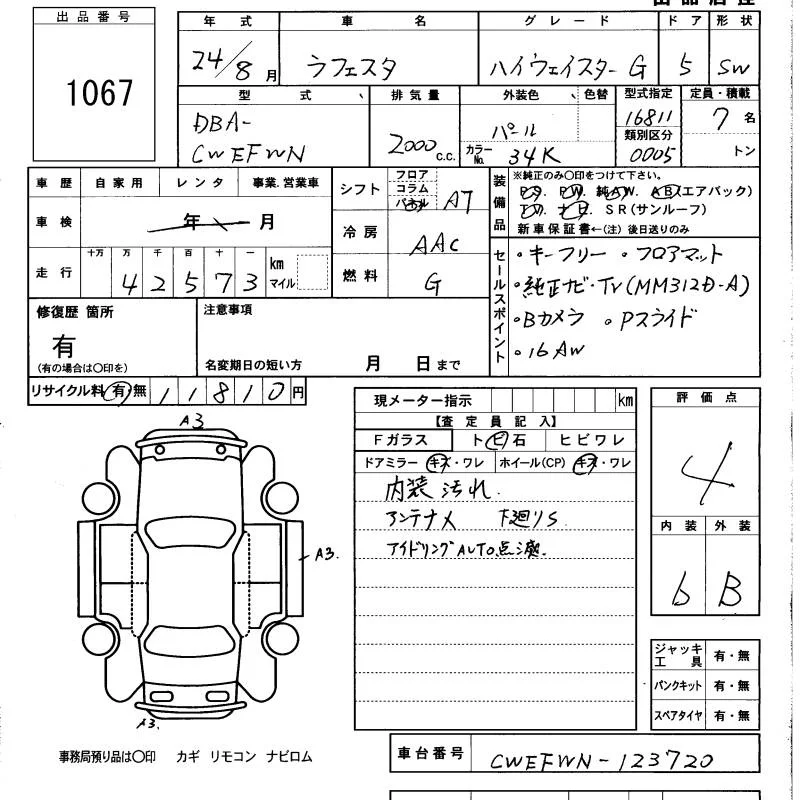 出品番号
1067
年式 車名 グレード ドア 形状
24/8月 ラフェスタ ハイウェイスター G 5 SW
型式、 排気量 外装色、色替 型式指定 定員・積載
DBA-
CWEFWN
2000 c.c.
パール
カラーNo. 34K
16811
類別区分
0005
7名
トン
車歴 自家用 レンタ 事業.営業車
車検 年 月
走行 十万 万 千 百 十 一
4 2 5 7 3 km マイル
シフト フロア コラム パネル A7
冷房 AAC
燃料 G
装備品
※純正のみ〇印をつけて下さい。
P.S. P.W. 純AW. AB(エアバック)
TV. ナビ. SR(サンルーフ)
新車保証書←(注)後日送りのみ
セールスポイント
・キーフリー ・フロアマット
・純正ナビ・TV(MM312D-A)
・Bカメラ ・Pスライド
・16AW
修復歴 箇所
有
(有の場合は〇印を)
注意事項
名変期日の短い方 月 日まで
リサイクル料 有 無 11810円
現メーター指示 km
【査定員記入】
Fガラス トビ石 ヒビワレ
ドアミラー キズ・ワレ ホイール(CP) キズ・ワレ
内装 汚れ.
アンテナ× 下廻りS
アイドリングAUTO点滅.
評価点
4
内装 外装
b B
A3
A3.
A3.
ジャッキ工具 有・無
パンクキット 有・無
スペアタイヤ 有・無
事務局預り品は〇印 カギ リモコン ナビロム
車台番号 CWEFWN-123720